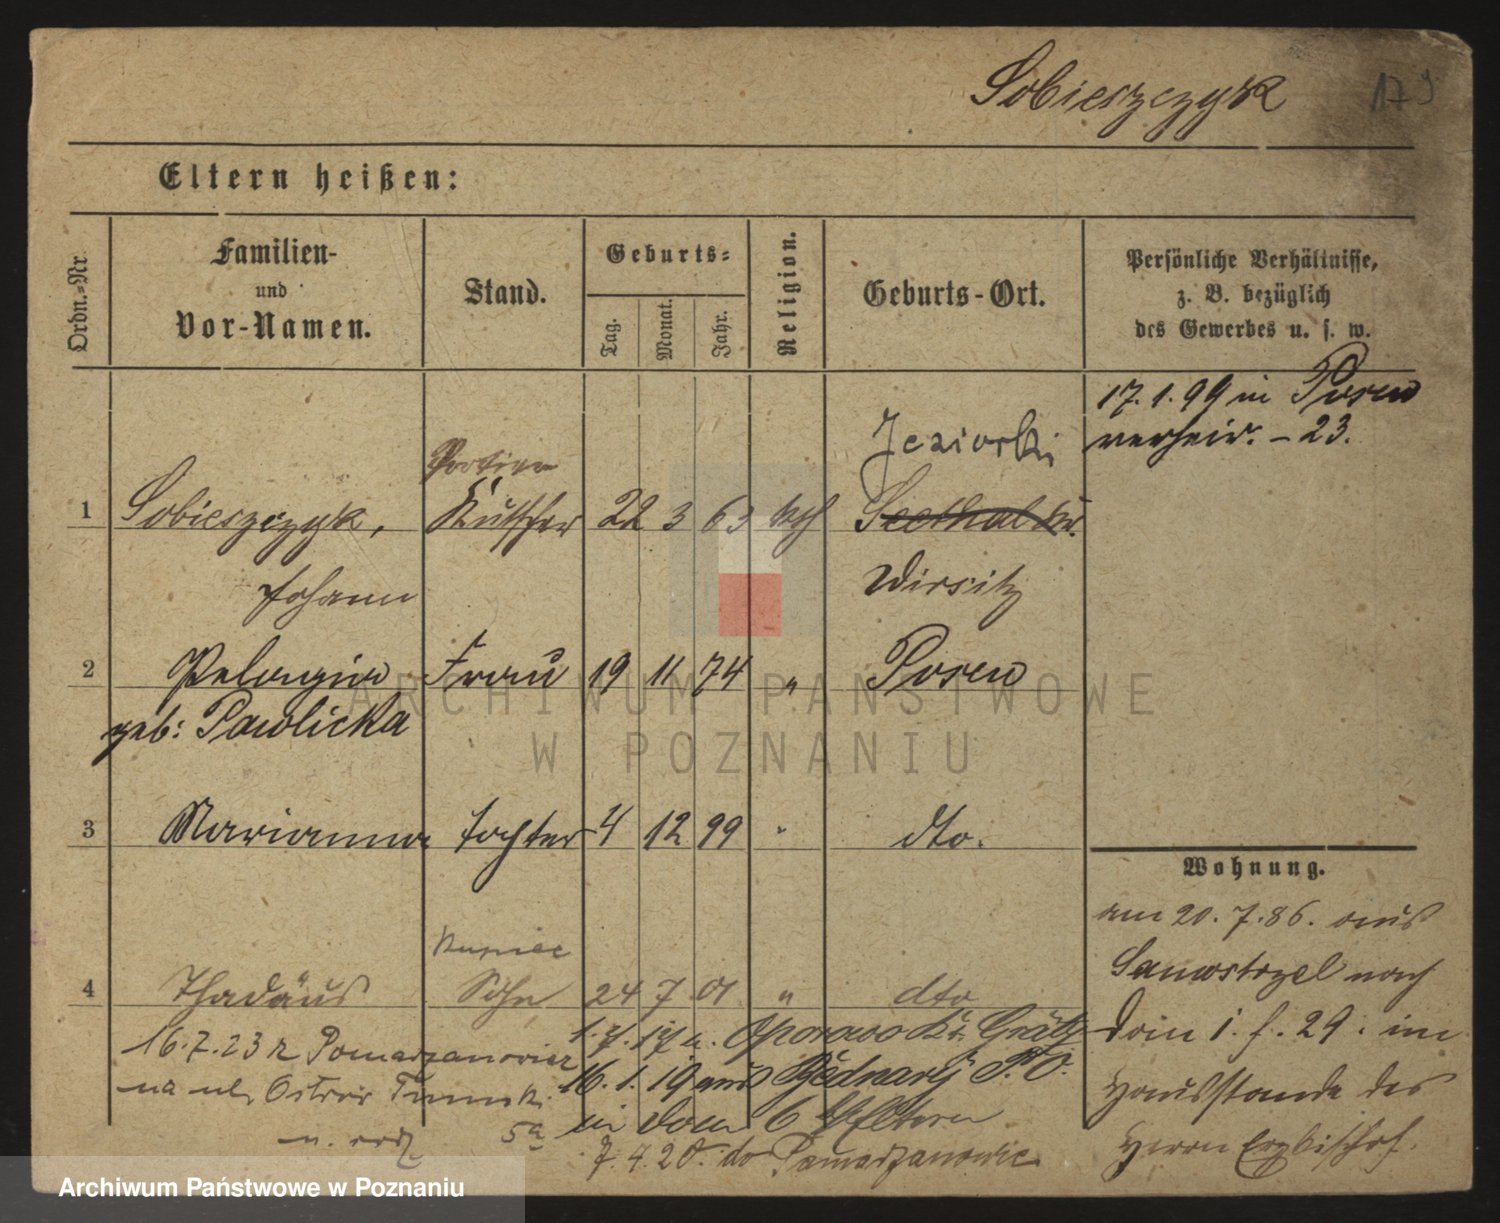 Sobieszczyk
179
Eltern heißen:
Ordn.-Nr.
Familien-
und
Vor-Namen.
Stand.
Geburts-
Tag.
Monat.
Jahr.
Religion.
Geburts-Ort.
Persönliche Verhältnisse,
z. B. bezüglich
des Gewerbes u. s. w.
17. 1. 99 in Posen
verheir. - 23.
Jeziorki
Portier
1 Sobieszczyk, Kutscher 22 3 63 kth Seethal Kr.
Johann Wirsitz
2 Pelagia Frau 19 11 74 " Posen
geb: Pawlicka
3 Marianna Tochter 4 12 99 " dto.
Wohnung.
am 20. 7. 86. aus
Samostrzel nach
Dom 1. f. 29. im
Hausstande des
Herrn Erzbischof.
Kupiec
4 Thadäus Sohn 24 7 01 " dto
1. 7. 17 n. Oporowo Kr. Grätz
16. 7. 23 z Pomarzanowic
16. 1. 19 aus Bednary P. O.
na ul. Ostrów Tumski
in Dom 6 Eltern
5a
n. rodz.
7. 4. 20. do Pomarzanowic
ARCHIWUM PAŃSTWOWE
W POZNANIU
Archiwum Państwowe w Poznaniu